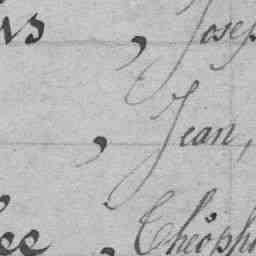 , Josep
, Jean,
ee , Théoph